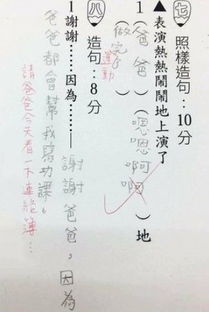 七 照樣造句：10分
▲表演熱熱鬧鬧地上演了
1（爸爸）（嗯嗯啊啊）地
（做完了運動）
八 造句：8分
1謝謝……因為……——謝謝爸爸，因為
爸爸都會幫我寫功課。
請爸爸今天看一下連絡簿…